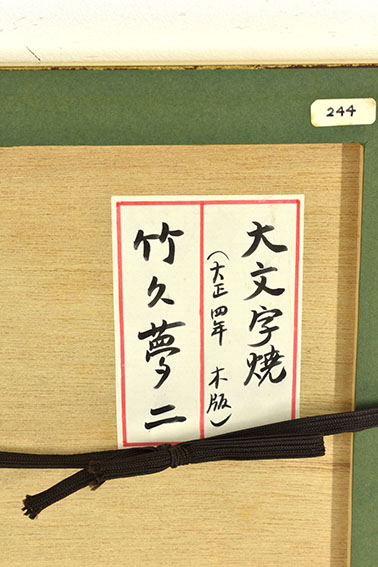 244
大文字焼
（大正四年 木版）
竹久夢二